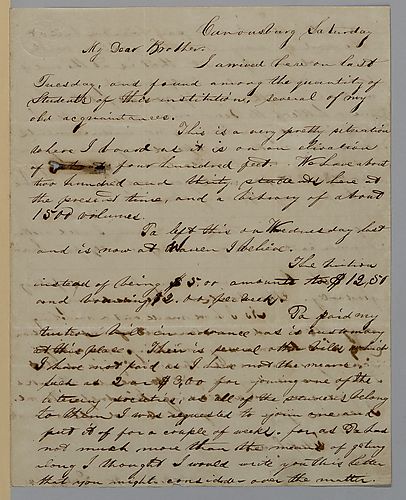 Canonsburg Saturday
My Dear Brother.
I arrived here on last
Tuesday, and found among the quantity of
Students of this institution, several of my
old acquaintances.
This is a very pretty situation
where I board as it is on an elivation
of four hundred feet. We have about
two hundred and thirty students here at
the present time, and a library of about
1500 volumes.
Pa left this on Wednesday last
and is now at Warren I believe.
The tuition
instead of being $5.00 amounts to $12,50
and boarding $2.00 per week.
Pa paid my
tuition bill in advance as is customary
at this place. Their is several other bills which
I have not paid as I had not the means
such as 2 or $3,00 for joining one of the
literary societies, as all of the students belong
to them I was requested to join one and
put it of for a couple of weeks. for as Pa had
not much more than the means of geting
along I thought I would write you this letter
that you might consider over the matter.